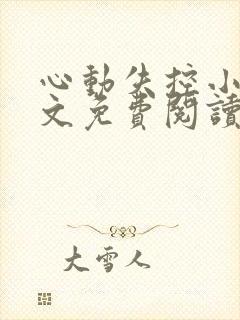 心動失控小
文免費閱讀
大雪人